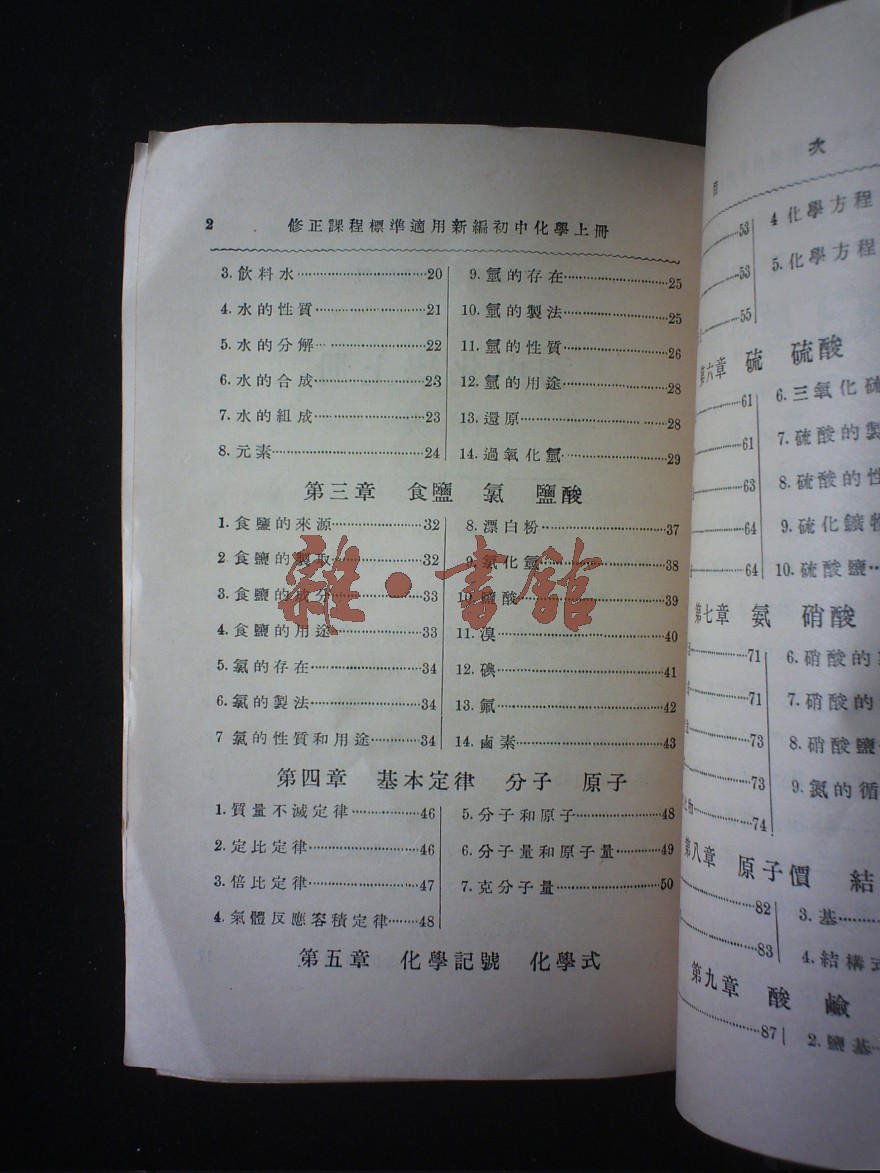 2 修正課程標準適用新編初中化學上冊
3. 飲料水 20
4. 水的性質 21
5. 水的分解 22
6. 水的合成 23
7. 水的組成 23
8. 元素 24
9. 氫的存在 25
10. 氫的製法 25
11. 氫的性質 26
12. 氫的用途 28
13. 還原 28
14. 過氧化氫 29
第三章 食鹽 氯 鹽酸
1. 食鹽的來源 32
2 食鹽的製取 32
3. 食鹽的成分 33
4. 食鹽的用途 33
5. 氯的存在 34
6. 氯的製法 34
7 氯的性質和用途 34
8. 漂白粉 37
9. 氯化氫 38
10. 鹽酸 39
11. 溴 40
12. 碘 41
13. 氟 42
14. 鹵素 43
第四章 基本定律 分子 原子
1. 質量不滅定律 46
2. 定比定律 46
3. 倍比定律 47
4. 氣體反應容積定律 48
5. 分子和原子 48
6. 分子量和原子量 49
7. 克分子量 50
第五章 化學記號 化學式
雜·書館
目 次
53
53
55
4 化學方程
5. 化學方程
第六章 硫 硫酸
61
61
63
64
64
6. 三氧化硫
7. 硫酸的製
8. 硫酸的性
9. 硫化鑛物
10. 硫酸鹽
第七章 氨 硝酸
71
71
73
73
物 74
6. 硝酸的
7. 硝酸的
8. 硝酸鹽
9. 氮的循
第八章 原子價 結
82
83
3. 基
4. 結構式
第九章 酸 鹼
87
2. 鹽基